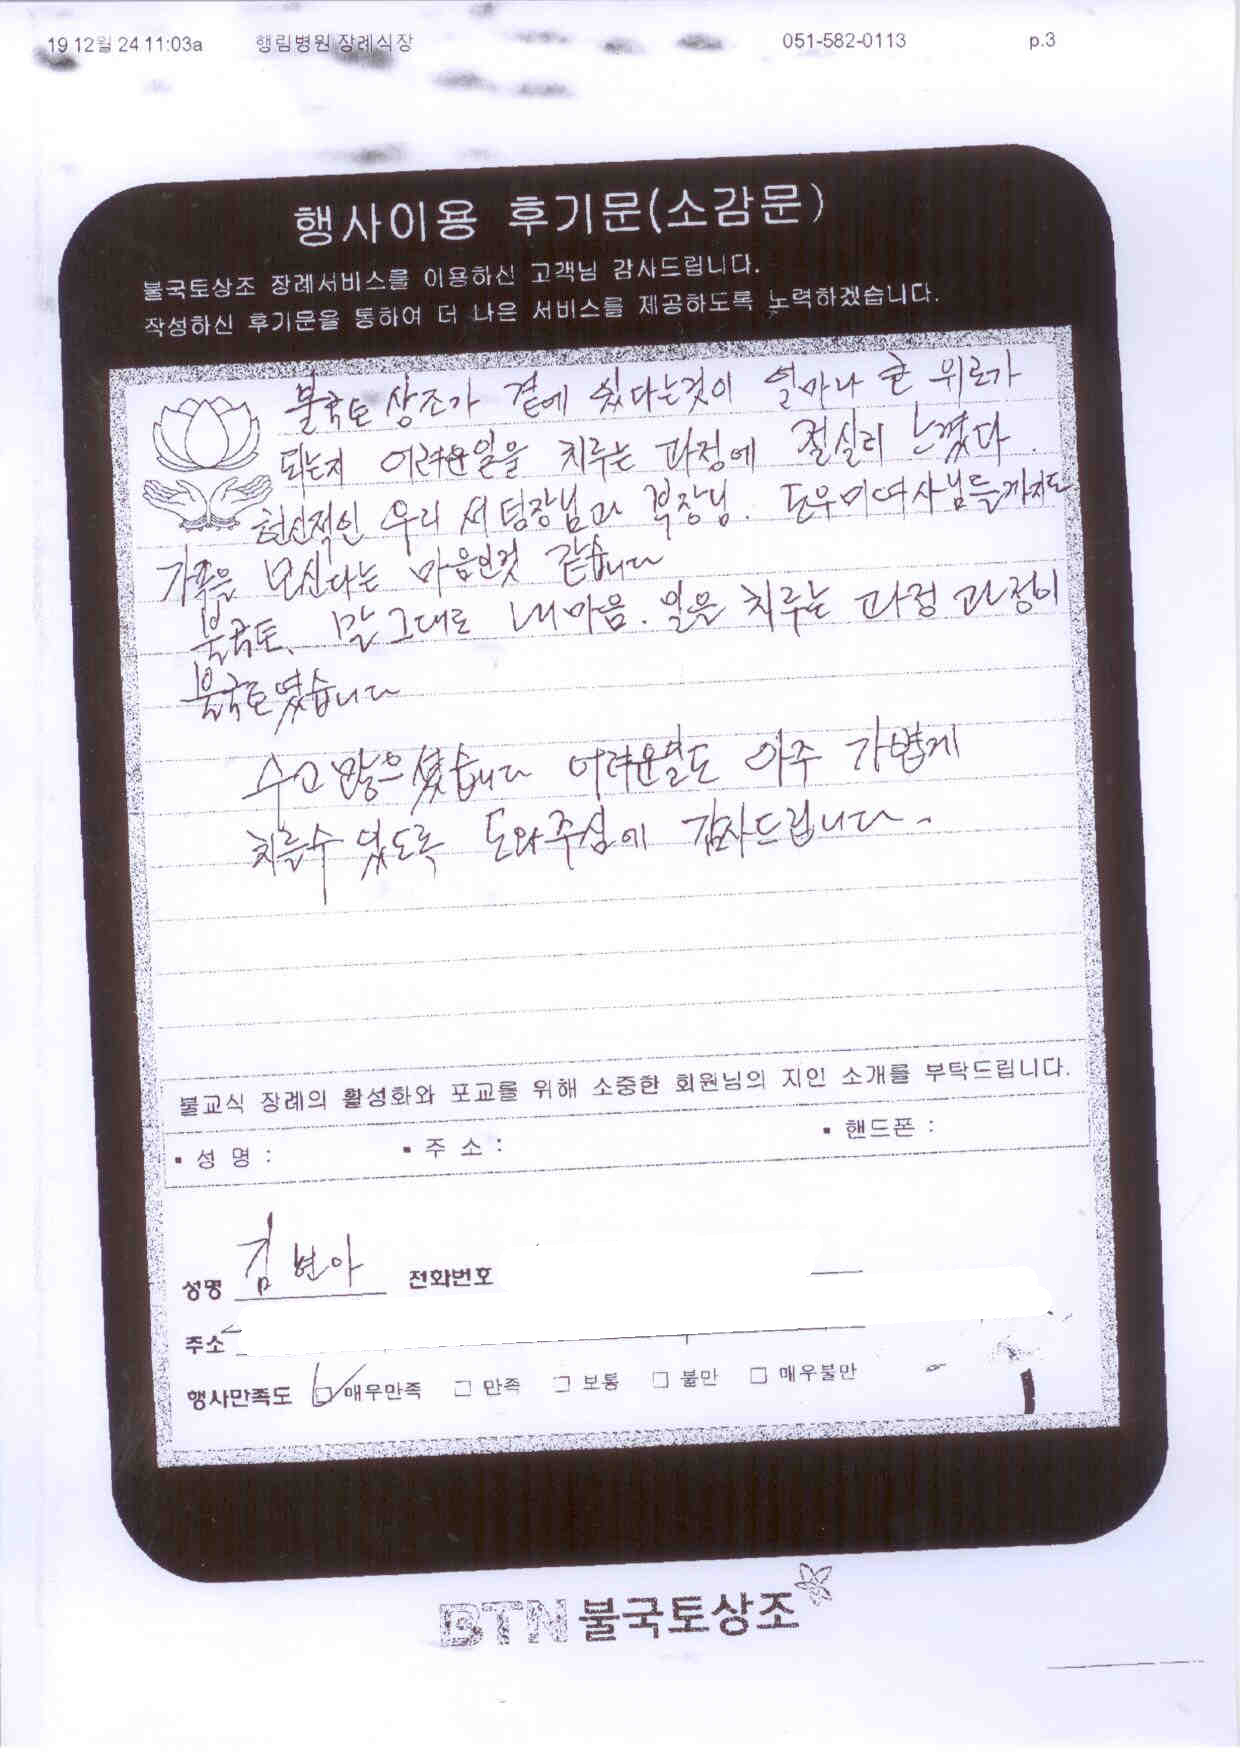 19 12월 24 11:03a 행림병원 장례식장 051-582-0113 p.3
행사이용 후기문(소감문)
불국토상조 장례서비스를 이용하신 고객님 감사드립니다.
작성하신 후기문을 통하여 더 나은 서비스를 제공하도록 노력하겠습니다.
불국토 상조가 곁에 있다는것이 얼마나 큰 위로가
되는지 어려운일을 치루는 과정에 절실히 느꼈다.
헌신적인 우리 서팀장님과 부장님. 도우미여사님들까지도
가족을 모신다는 마음인것 같습니다
불국토. 말 그대로 내마음. 일을 치루는 과정 과정이
불국토였습니다
수고 많으셨습니다 어려운일도 아주 가볍게
치를수 있도록 도와주심에 감사드립니다.
불교식 장례의 활성화와 포교를 위해 소중한 회원님의 지인 소개를 부탁드립니다.
▪ 성 명 : ▪ 주 소 : ▪ 핸드폰 :
성명 김현아 전화번호
주소
행사만족도 ☑ 매우만족 □ 만족 □ 보통 □ 불만 □ 매우불만
BTN불국토상조